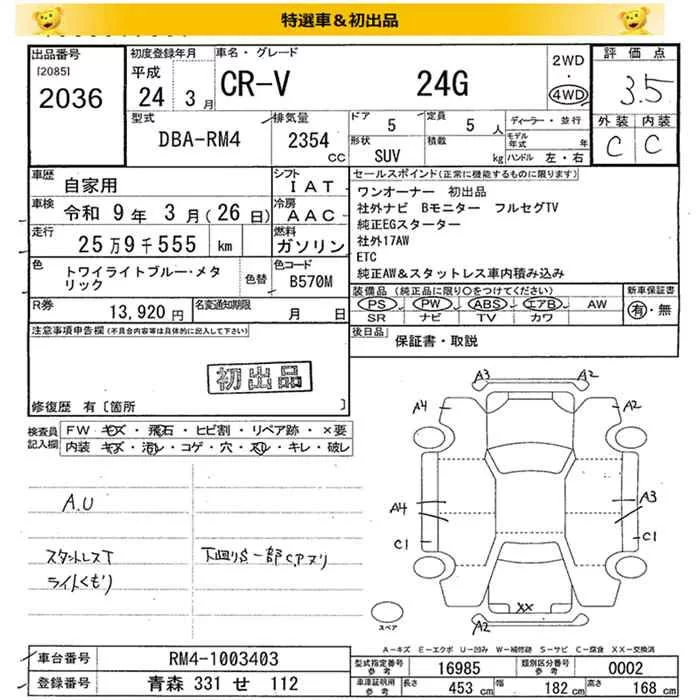 特選車＆初出品
出品番号
[2085]
2036
初度登録年月
平成
24 3月
車名・グレード
CR-V 24G
2WD
・
4WD
評価点
3.5
外装 内装
C C
型式
DBA-RM4
排気量
2354
CC
ドア
5
定員
5 人
形状
SUV
積載
kg
ディーラー・並行
モデル
年式 年
ハンドル 左・右
車歴 自家用
シフト
IAT
車検 令和 9年 3月(26日)
冷房
AAC
走行 25万9千555 km
燃料
ガソリン
色 トワイライトブルー・メタリック
色替
色コード
B570M
R券 13,920円
名変通知期限
月 日
セールスポイント(正常に機能するものに限ります)
ワンオーナー 初出品
社外ナビ Bモニター フルセグTV
純正EGスターター
社外17AW
ETC
純正AW＆スタットレス車内積み込み
装備品 (純正品に限り○をつけてください)
PS PW ABS エアB AW
SR ナビ TV カワ
新車保証書
有・無
後日品
保証書・取説
注意事項申告欄(不具合内容等は具体的に記入して下さい)
初出品
修復歴 有[箇所 ]
検査員
記入欄
FW キズ・飛石・ヒビ割・リペア跡・×要
内装 キズ・汚レ・コゲ・穴・スレ・キレ・破レ
A.U
スタットレスT
ライトくもり
下廻りS 一部C.Pヌリ
A3 A2
A4 A2
A4 A3
C1 C1
XX
A2
スペア
A-キズ E-エクボ U-凹み W-補修跡 S-サビ C-腐食 XX-交換済
車台番号 RM4-1003403
登録番号 青森 331 せ 112
型式指定番号
参考
16985
類別区分番号
参考
0002
車庫証明用
参考
長さ 453 cm 幅 182 cm 高さ 168 cm